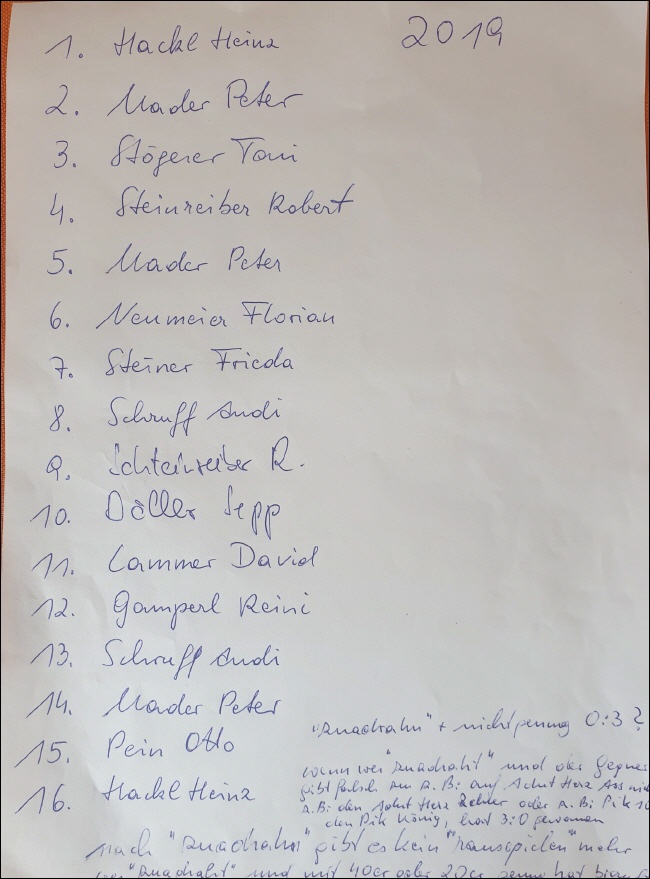 2019
1. Hackl Heinz
2. Mader Peter
3. Stögerer Toni
4. Steinreiber Robert
5. Mader Peter
6. Neumeier Florian
7. Steiner Frieda
8. Schruff Andi
9. Schteinreiber R.
10. Döller Sepp
11. Lammer David
12. Gamperl Reini
13. Schruff Andi
14. Mader Peter
15. Pein Otto
16. Hackl Heinz
"zuadrahn" + nicht genug 0:3 ?
wenn wer "zuadraht" und der Gegner
gibt falsch zu z.B: auf Herz Ass
z.B: den Herz oder z.B: Pik
den Pik König, hat 3:0 gewonnen
nach "zuadrahn" gibt es kein "ranspielen" mehr
wer "zuadraht" und mit 40er oder 20er hat